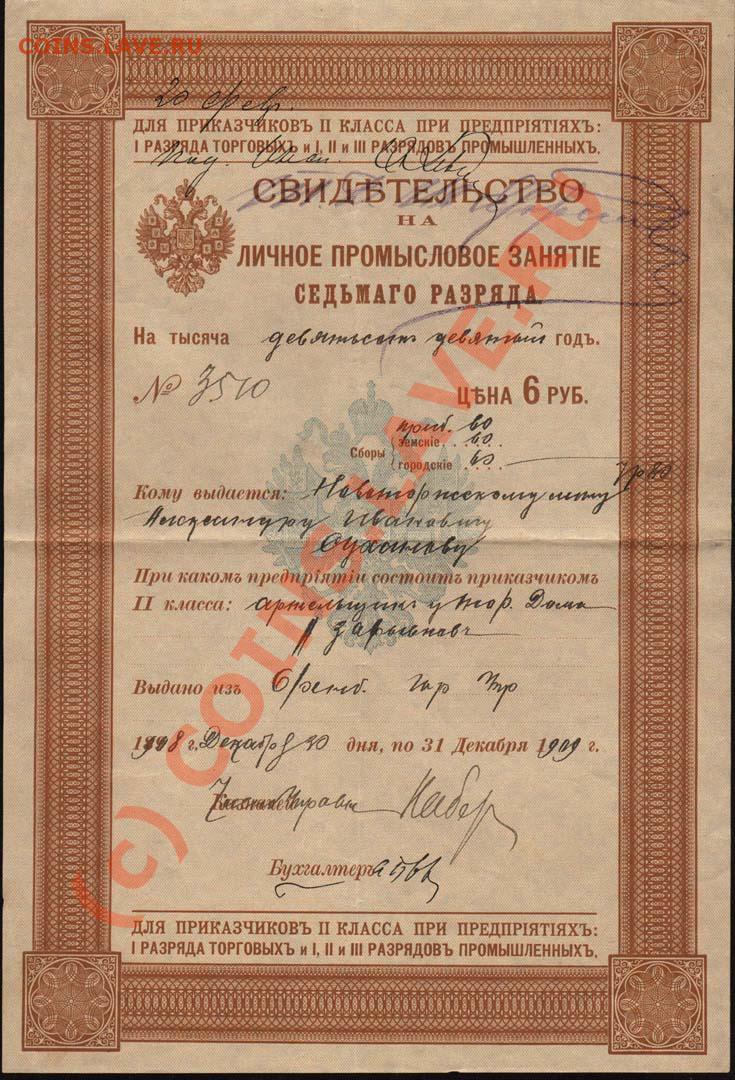 COINS.LAVE.RU
20 февр.
ДЛЯ ПРИКАЗЧИКОВЪ II КЛАССА ПРИ ПРЕДПРІЯТІЯХЪ:
I РАЗРЯДА ТОРГОВЫХЪ и I, II и III РАЗРЯДОВЪ ПРОМЫШЛЕННЫХЪ.
СВИДѢТЕЛЬСТВО
НА
ЛИЧНОЕ ПРОМЫСЛОВОЕ ЗАНЯТІЕ
СЕДЬМАГО РАЗРЯДА.
На тысяча девятьсот девятый годъ.
№ 3510 ЦѢНА 6 РУБ.
60
Сборы земскіе 60
городскіе 60
Кому выдается: Новоторжскому мѣщ
Александру Ивановичу
Суханову
При какомъ предпріятіи состоитъ приказчикомъ
II класса: артельщик у Тор. Дома
Зарывновъ
Выдано изъ Оренб. гор Упр
1908 г. Декабря 20 дня, по 31 Декабря 1909 г.
Управы
Бухгалтеръ
ДЛЯ ПРИКАЗЧИКОВЪ II КЛАССА ПРИ ПРЕДПРІЯТІЯХЪ:
I РАЗРЯДА ТОРГОВЫХЪ и I, II и III РАЗРЯДОВЪ ПРОМЫШЛЕННЫХЪ.
(c) COINS.LAVE.RU